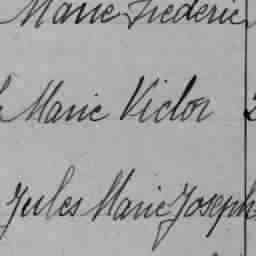 Marie Frederic
Marie Victor
Jules Marie Joseph